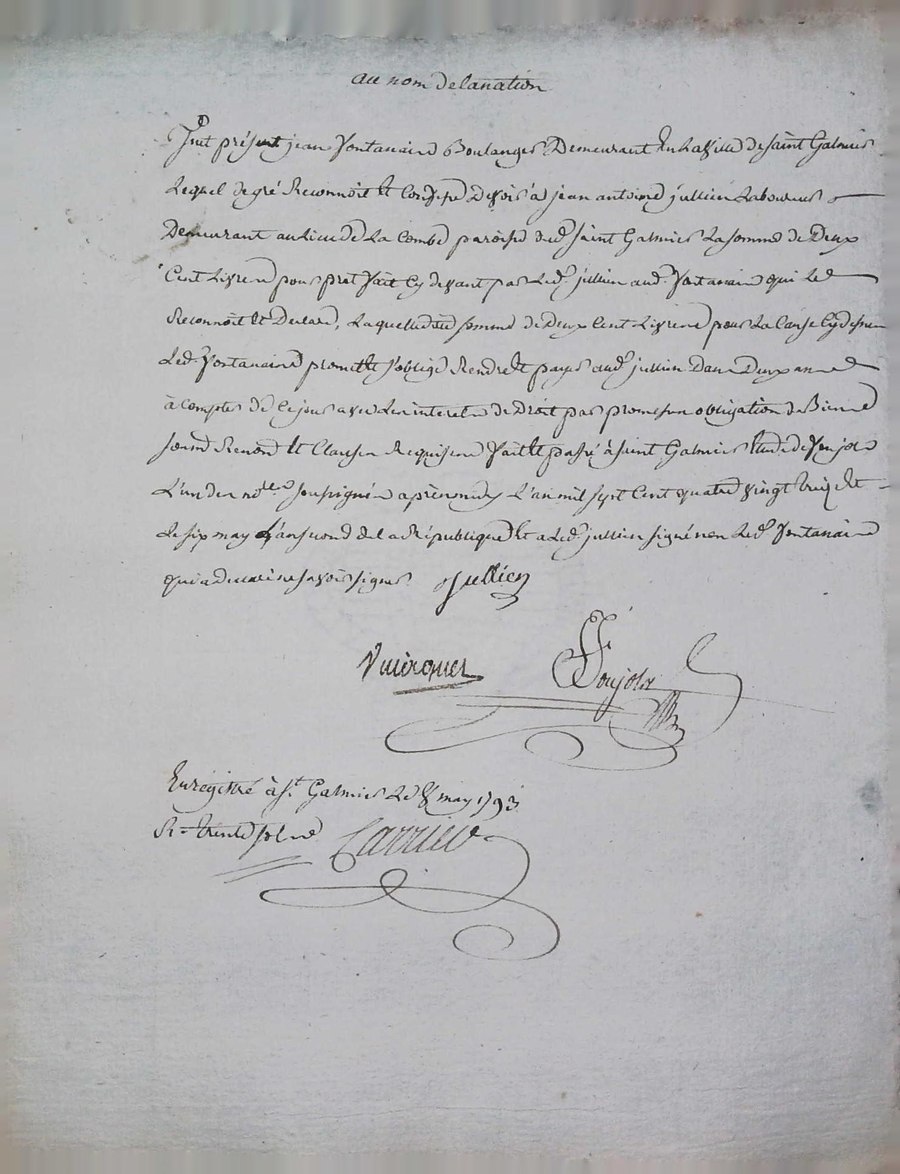 au nom de la nation
Fut présent jean fontanaire Boulanger Demeurant En La ville de saint Galmier
Lequel de gré Reconnoit Et Confesse Devoir à jean antoine jullien Laboureur
Demeurant au Lieu de La Combe paroisse dud. saint Galmier La somme de Deux
Cent Livres pour pret fait Cy devant par Led. jullien aud. fontanaire qui Le
Reconnoit Et Declare, Laquelle ditte somme de Deux Cent Livres pour La Cause Cy dessus
Led. fontanaire promet Et s'oblige Rendre Et payer aud. jullien Dans Deux année
à Compter de Ce jour avec Les interets de Droit par promesses obligation de Biens
soumd Renond Et Clauses Requises fait Et passé à saint Galmier Etude de Soujols
L'un des nores soussignés après midy L'an mil sept Cent quatre vingt treize Et
Le six may L'an second de la République Et a Led. jullien signé non Led. fontanaire
qui a declaré ne savoir signer. Jullien
Soujols
Enregistré à st. Galmier Le 8 may 1793
R. trente sols Carrier